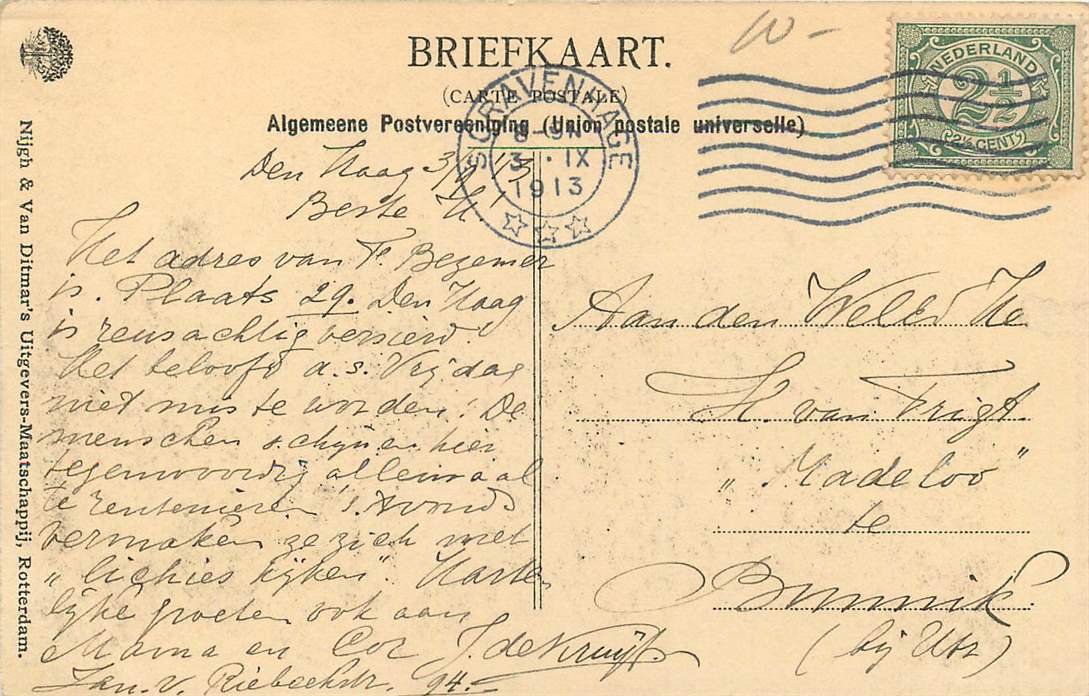 BRIEFKAART.
(CARTE POSTALE)
Algemeene Postvereeniging (Union postale universelle)
NEDERLAND
2½
2½ CENT
'S GRAVENHAGE
8-9N
3.IX
1913
Nijgh & Van Ditmar's Uitgevers-Maatschappij, Rotterdam.
Den Haag 3/9 '13
Beste H!
Het adres van F. Bezemer
is. Plaats 29. Den Haag
is reusachtig versierd!
Het belooft a.s. Vrijdag
niet mis te worden! De
menschen schijnen hier
tegenwoordig allemaal
te rentenieren 's Avonds
vermaken ze zich met
"lichies kijken". Harte-
lijke groeten ook aan
Mama en Cor J. de Kruyff.
Jan. v. Riebeekstr. 94.
Aan den WelEd He
H. van Trigt
"Madeloo"
te
Bunnik.
(bij Utr)